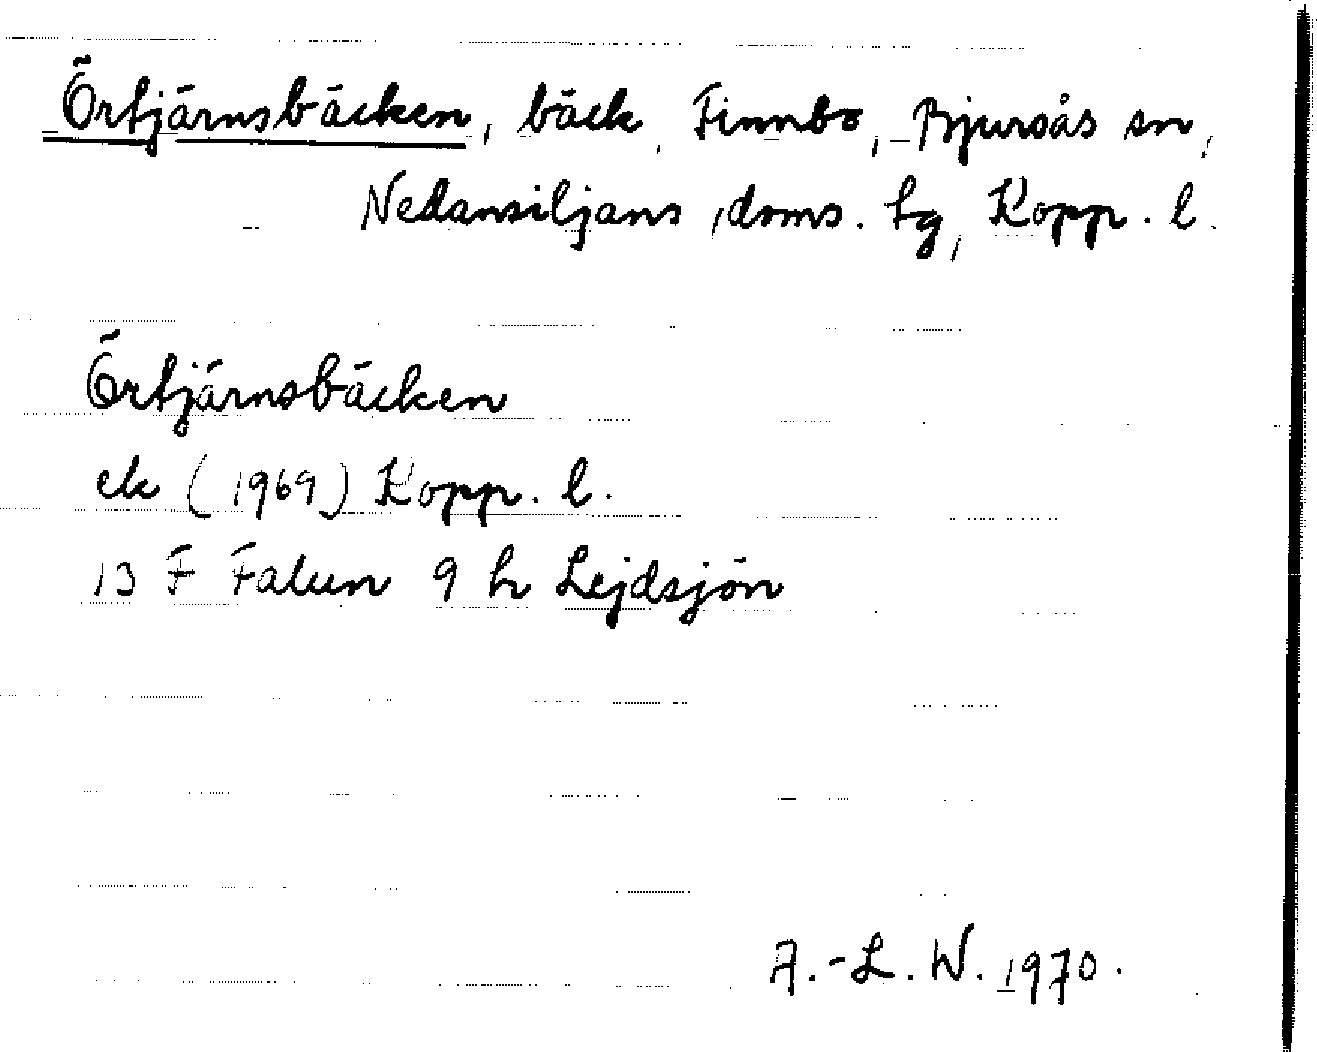 Örtjärnsbäcken, bäck, Finnbo, Bjursås sn,
Nedansiljans doms. tg, Kopp. l.
Örtjärnsbäcken
ek (1969) Kopp. l.
13 F Falun 9 h Lejdsjön
A.-L. W. 1970.